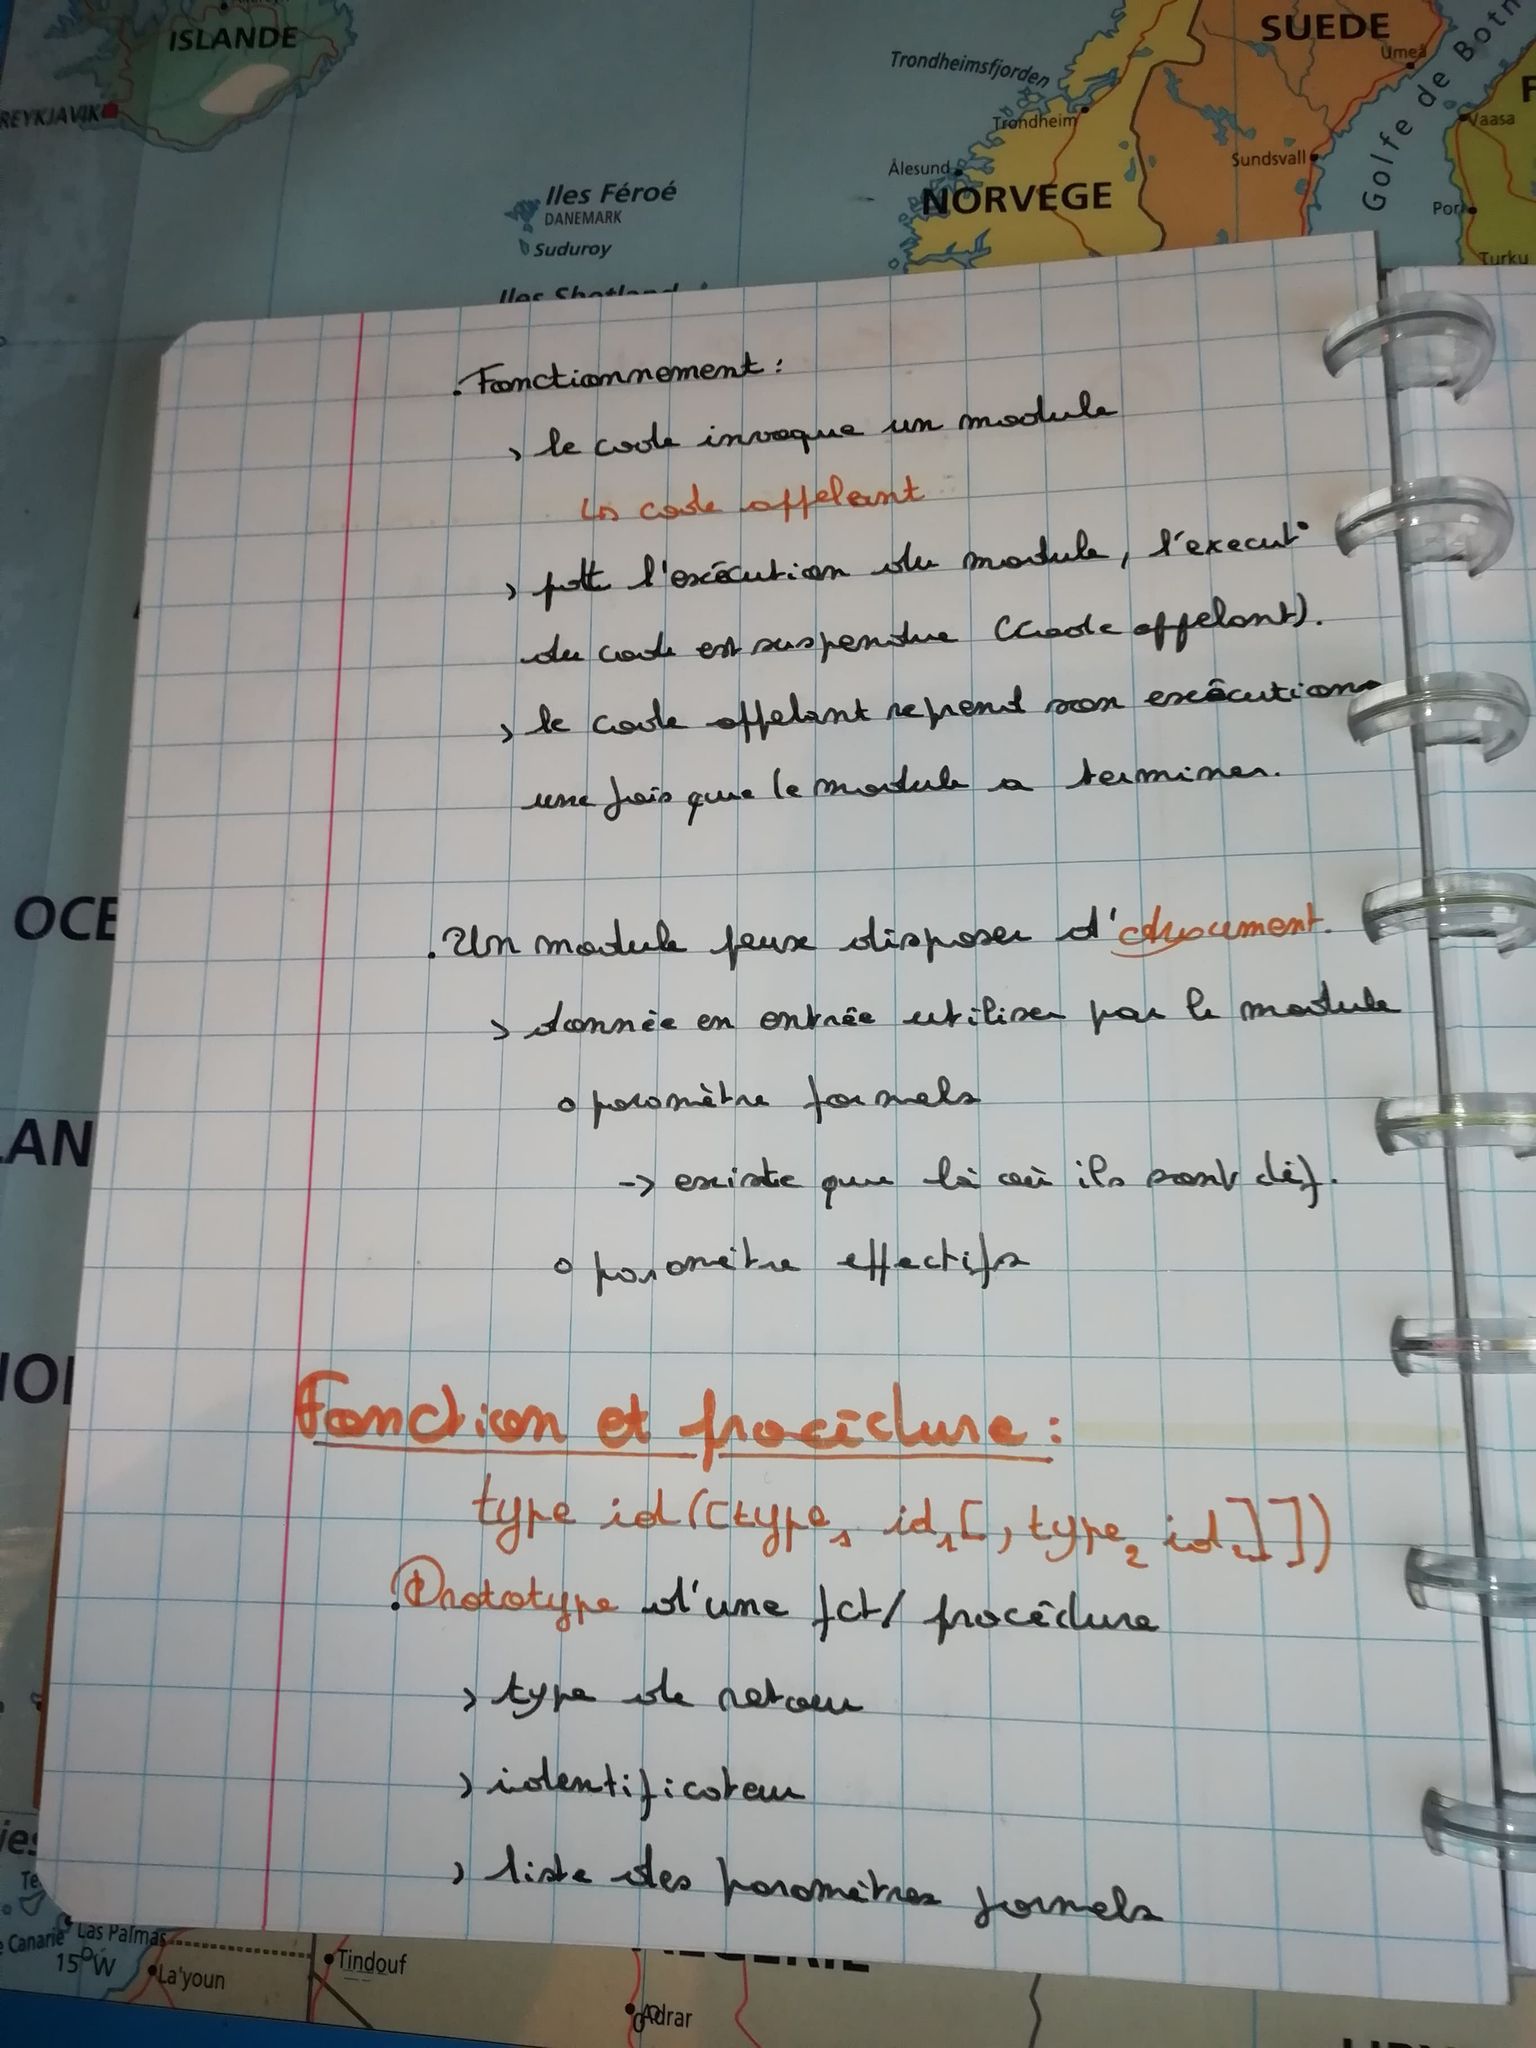 ISLANDE
REYKJAVIK
Iles Féroé
DANEMARK
Suduroy
Trondheimsfjorden
Trondheim
Ålesund
NORVEGE
SUEDE
Umeå
Sundsvall
Golfe de Botn
Vaasa
Pori
Turku
F
. Fonctionnement :
> le code invoque un module
↳ code appelant
> pdt l'exécution du module, l'execut°
du code est suspendue (code appelant).
> le code appelant reprend son exécution
une fois que le module a terminer.
. Un module peux disposer d'
> donnée en entrée utiliser par le module
o paramètre formels
-> existe que là où ils sont déf.
o paramètre effectifs
Fonction et procédure :
type id([type₁ id₁[, type₂ id₂]])
. Prototype d'une fct/ procédure
> type de retour
> identificateur
> liste des paramètres formels
OCE
LAN
ies
Te
Canarie
Las Palmas
15°W
La'youn
Tindouf
Adrar